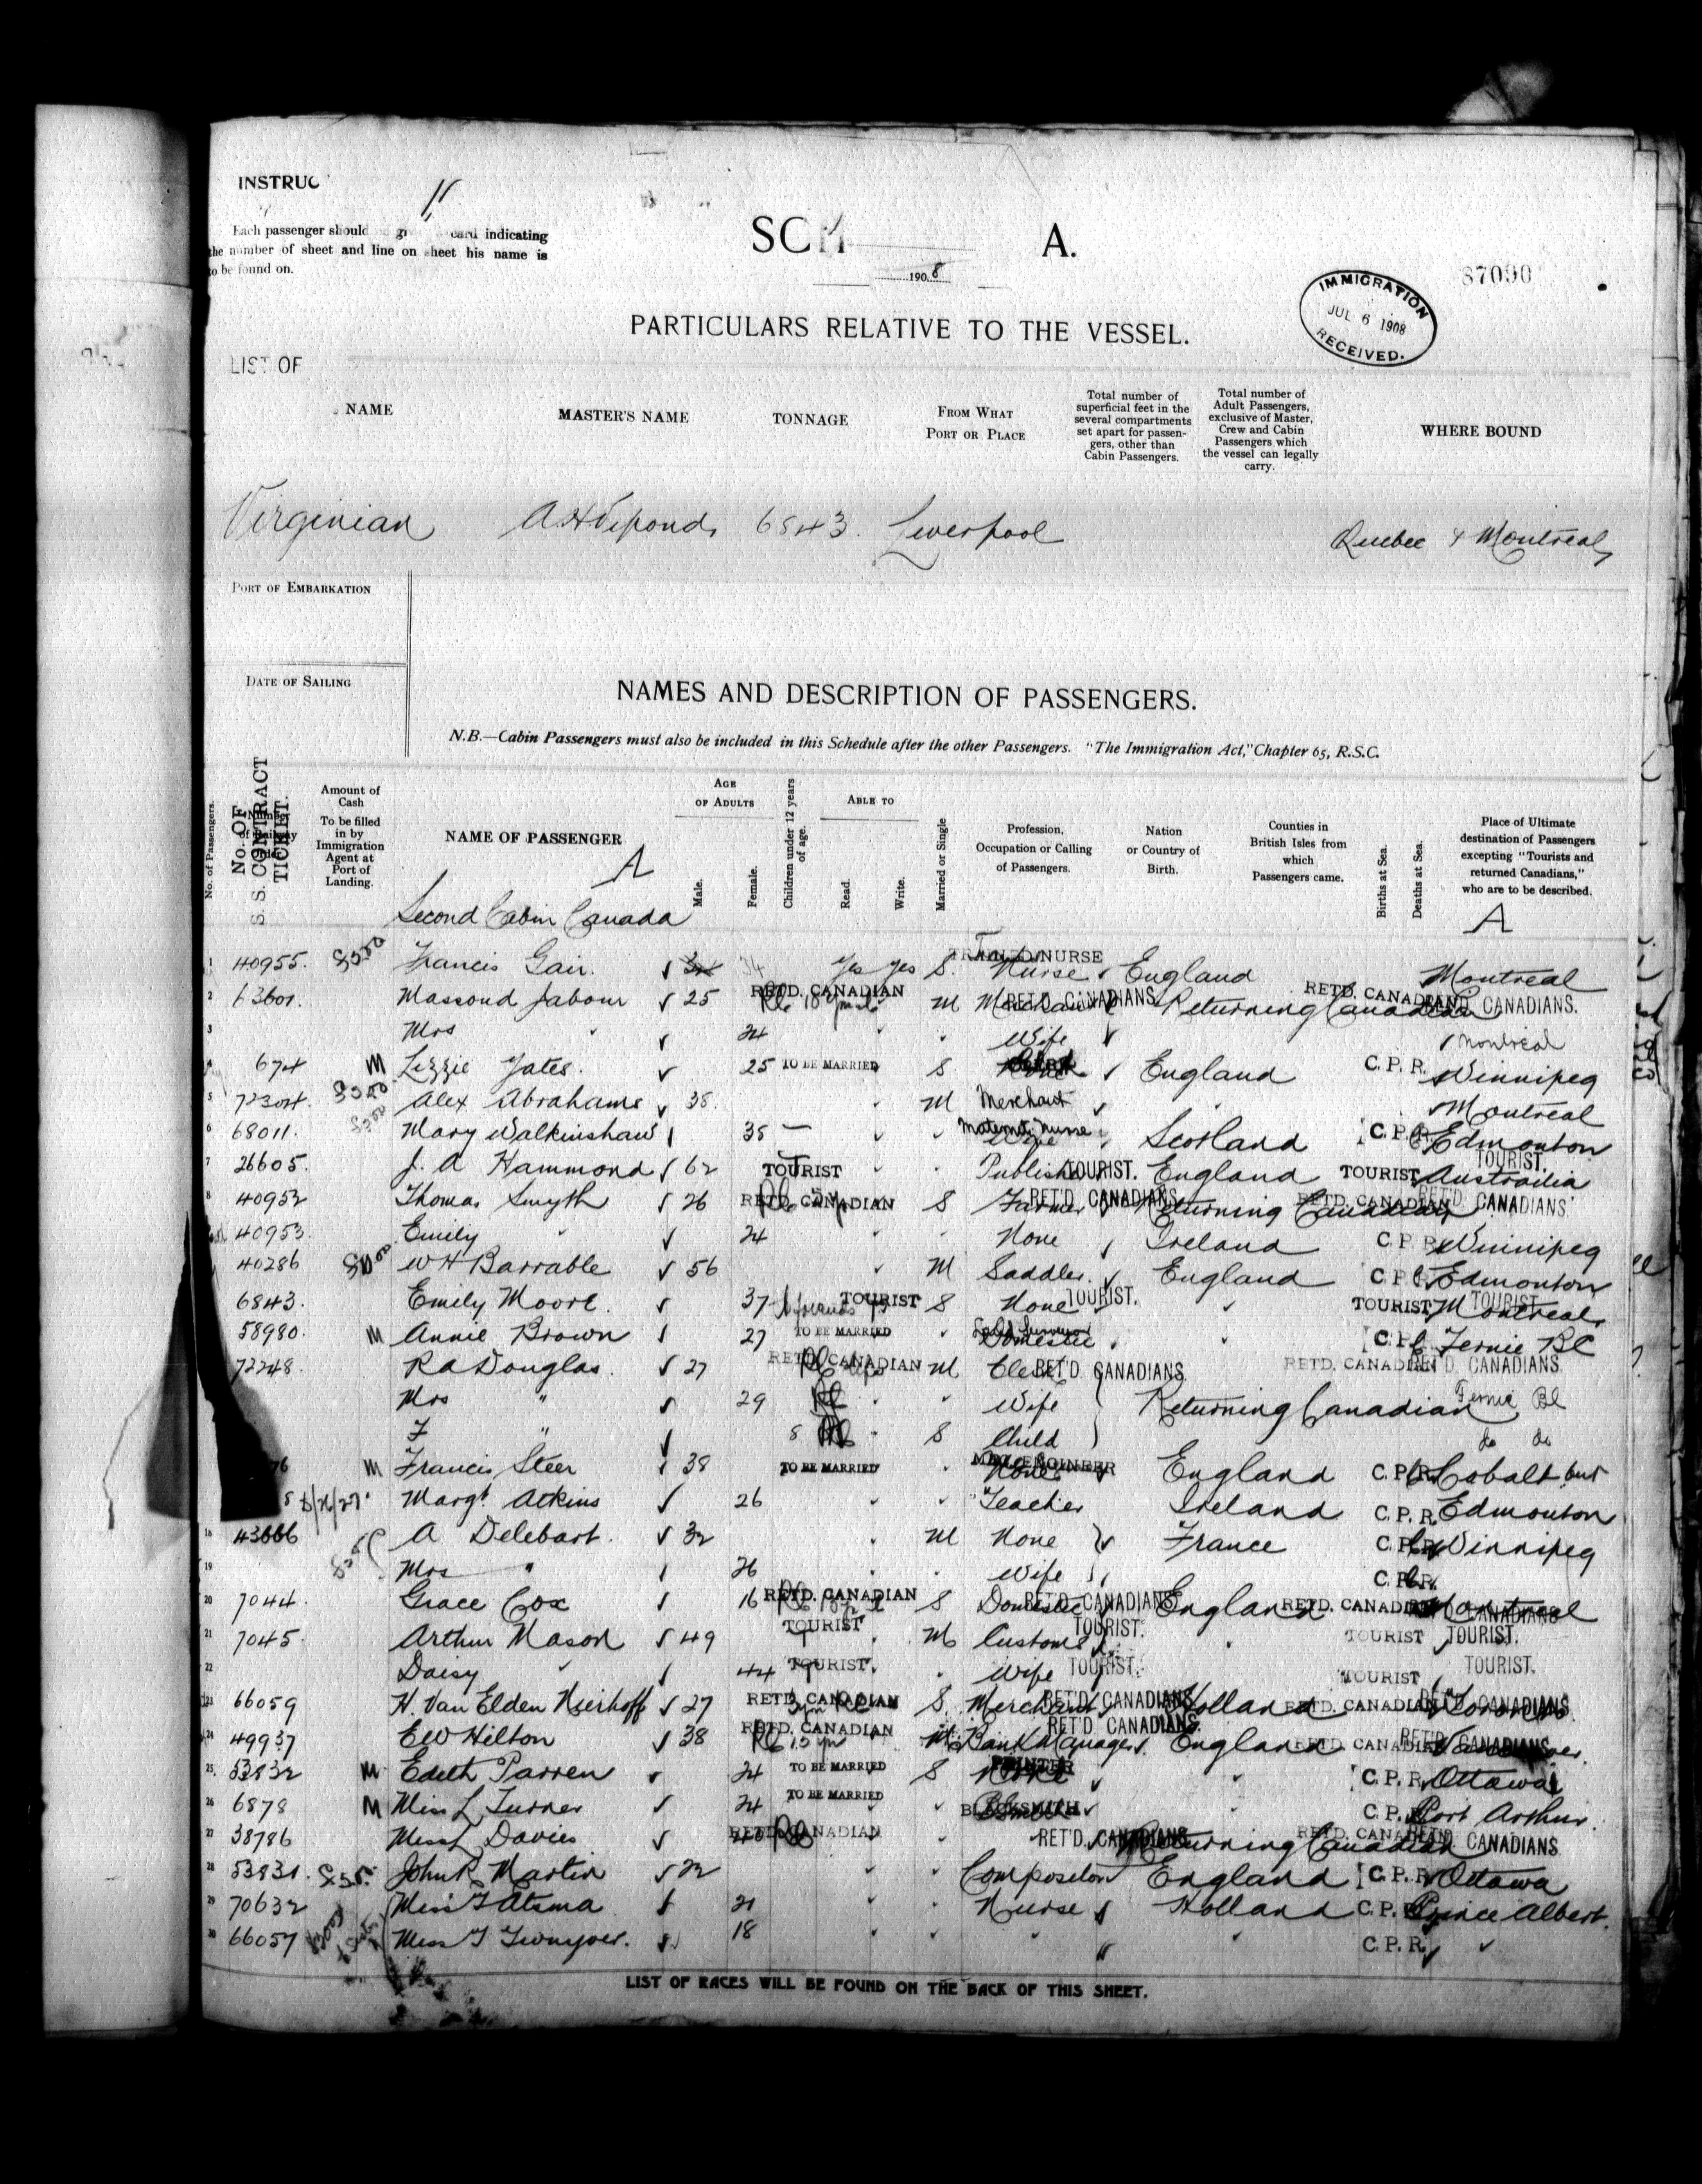 INSTRUC
11
Each passenger should card indicating
the number of sheet and line on sheet his name is
to be found on.
A.
1908
87090
IMMIGRATION
JUL 6 1908
RECEIVED.
PARTICULARS RELATIVE TO THE VESSEL.
LIST OF
NAME MASTER'S NAME TONNAGE FROM WHAT PORT OR PLACE Total number of superficial feet in the several compartments set apart for passengers, other than Cabin Passengers. Total number of Adult Passengers, exclusive of Master, Crew and Cabin Passengers which the vessel can legally carry. WHERE BOUND
Virginian 6843. Liverpool Quebec & Montreal
PORT OF EMBARKATION
DATE OF SAILING
NAMES AND DESCRIPTION OF PASSENGERS.
N.B.—Cabin Passengers must also be included in this Schedule after the other Passengers. "The Immigration Act," Chapter 65, R.S.C.
No. of Passengers. No. OF S. S. CONTRACT TICKET. Amount of Cash To be filled in by Immigration Agent at Port of Landing. NAME OF PASSENGER A AGE OF ADULTS Male. Female. Children under 12 years of age. ABLE TO Read. Write. Married or Single Profession, Occupation or Calling of Passengers. Nation or Country of Birth. Counties in British Isles from which Passengers came. Births at Sea. Deaths at Sea. Place of Ultimate destination of Passengers excepting "Tourists and returned Canadians," who are to be described. A
Second Cabin Canada
1 40955. Francis Gair. 34 Yes Yes S. Nurse England Montreal
2 63601. Massoud Jabour 25 RETD. CANADIAN M RET'D. CANADIANS. Returning Canadian RETD. CANADIAN CANADIANS.
3 Mrs " 24 Wife Montreal
4 674 M Lizzie Yates. 25 TO BE MARRIED S England C.P.R. Winnipeg
5 72304. Alex Abrahams 38. M Merchant Montreal
6 68011. Mary Walkinshaw 35 Nurse Scotland C.P.R. Edmonton
7 26605. J. A Hammond 62 TOURIST Publisher TOURIST. England TOURIST Australia TOURIST.
8 40952 Thomas Smyth 26 RETD. CANADIAN S Farmer RET'D. CANADIANS Returning Canadian RETD. CANADIAN RET'D. CANADIANS.
40953. Emily " 24 None Ireland C.P.R. Winnipeg
40286 W H Barrable 56 M Saddler. England C.P.R. Edmonton
6843. Emily Moore. 37 TOURIST S None TOURIST. TOURIST Montreal TOURIST
58980. M Annie Brown 27 TO BE MARRIED Domestic C.P.R. Fernie BC
72248. R A Douglas. 27 RETD. CANADIAN M Clerk RET'D. CANADIANS. RETD. CANADIAN RET'D. CANADIANS
Mrs " 29 Wife Returning Canadian Fernie BC
F " 8 S Child do do
M Francis Steer 38 TO BE MARRIED England C.P.R. Cobalt
Margt. Atkins 26 Teacher Ireland C.P.R. Edmonton
18 43666 A Delebart. 32 M None France C.P.R. Winnipeg
19 Mrs " 26 Wife C.P.R.
20 7044. Grace Cox 16 RETD. CANADIAN S Domestic RET'D. CANADIANS England RETD. CANADIAN Montreal
21 7045. Arthur Mason 49 TOURIST M Customs TOURIST. TOURIST TOURIST.
22 Daisy " 44 TOURIST. Wife TOURIST. TOURIST TOURIST.
23 66059 H. Van Elden Nierhoff 27 RETD. CANADIAN S. Merchant RET'D. CANADIANS Holland RETD. CANADIAN Toronto
24 49937 E W Hilton 38 RETD. CANADIAN M Bank Manager RET'D. CANADIANS. England RETD. CANADIAN RET'D. CANADIANS
25. 53832 M Edith Parren 24 TO BE MARRIED S C.P.R. Ottawa
26 6878 M Miss L Turner 24 TO BE MARRIED BLACKSMITH C.P.R. Port Arthur.
27 38786 Miss L Davies RETD. CANADIAN RET'D. CANADIANS Returning Canadian RETD. CANADIAN CANADIANS
28 53831. John R Martin 22 Compositor England C.P.R. Ottawa
29 70632 Miss T Atsma 21 Nurse Holland C.P.R. Prince Albert.
30 66057 18 C.P.R.
LIST OF RACES WILL BE FOUND ON THE BACK OF THIS SHEET.